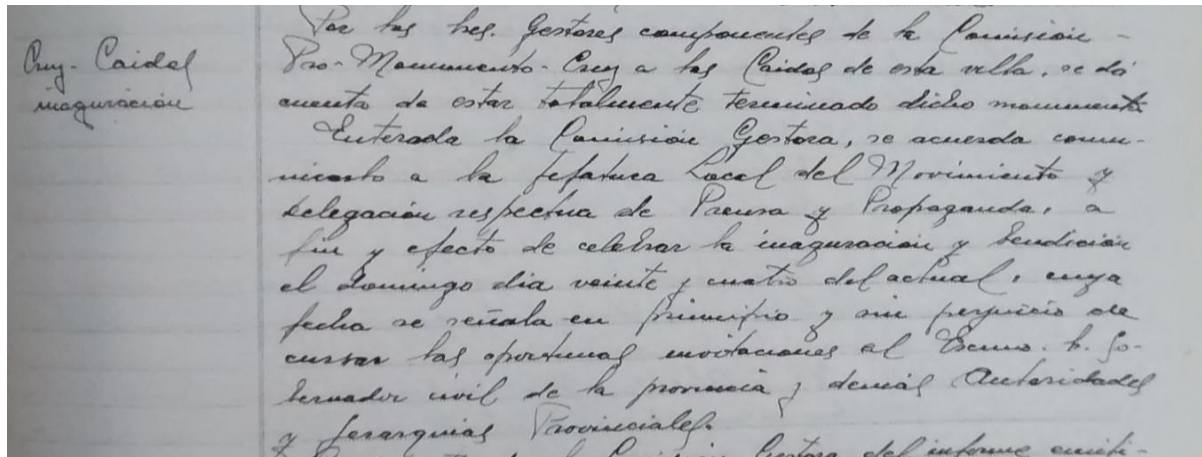 Cruz-Caidos
inaguración
Por los Sres. Gestores componentes de la Comisión -
Pro-Monumento-Cruz a los Caidos de esta villa, se dá
cuenta de estar totalmente terminado dicho monumento.
Enterada la Comisión Gestora, se acuerda comu-
nicarlo a la Jefatura Local del Movimiento y
Delegación respectiva de Prensa y Propaganda, a
fin y efecto de celebrar la inaguración y bendición
el domingo dia veinte y cuatro del actual, cuya
fecha se señala en principio y sin perjuicio de
cursar las oportunas invitaciones al Excmo. S. Go-
bernador civil de la provincia y demás Autoridades
y Jerarquias Provinciales.
la Comisión Gestora del informe emiti-